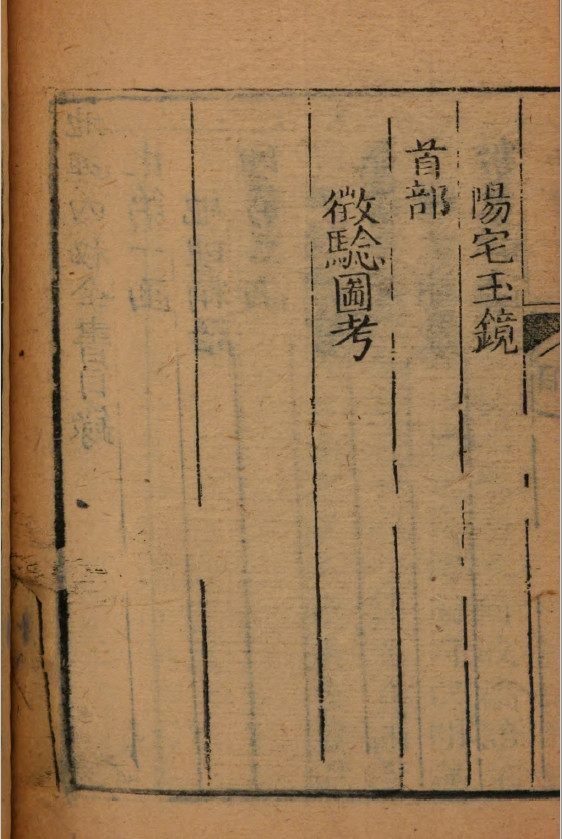 陽宅玉鏡
首部
徴驗圖考